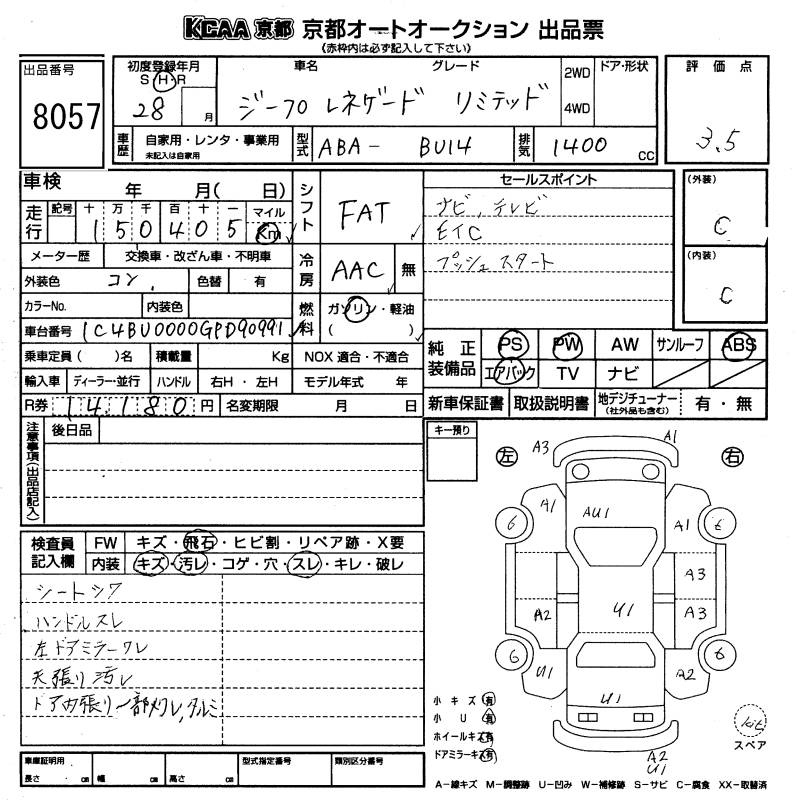 KCAA 京都 京都オートオークション 出品票
(赤枠内は必ず記入して下さい)
出品番号
8057
初度登録年月
S・H・R
28 月
車名 グレード
ジープ レネゲード リミテッド
2WD
4WD
ドア・形状
評価点
3.5
車歴
自家用・レンタ・事業用
未記入は自家用
型式
ABA- BU14
排気
1400 cc
車検 年 月( 日)
走行
記号 十 万 千 百 十 一
150405
マイル
Km
メーター歴 交換車・改ざん車・不明車
外装色 コン 色替 有
カラーNo. 内装色
車台番号 1C4BU0000GPD90991
シフト FAT
冷房 AAC 無
燃料 ガソリン・軽油
( )
セールスポイント
ナビ、テレビ
ETC
プッシュスタート
(外装)
C
(内装)
C
乗車定員( )名 積載量 Kg NOX 適合・不適合
輸入車 ディーラー・並行 ハンドル 右H・左H モデル年式 年
R券 14,180 円 名変期限 月 日
純正装備品
PS PW AW サンルーフ ABS
エアバック TV ナビ
新車保証書 取扱説明書 地デジチューナー(社外品も含む) 有・無
注意事項(出品店記入)
後日品
キー預り
検査員記入欄
FW キズ・飛石・ヒビ割・リペア跡・X要
内装 キズ・汚レ・コゲ・穴・スレ・キレ・破レ
シートシワ
ハンドルスレ
左ドアミラーワレ
天張り汚レ
ドア内張り一部メクレ,タルミ
左 右
A3 A1
A1 AU1 A1
6 6
A3
A2 U1 A3
6 6
U1 A2
U1
A2
U1
小キズ 有
小U 有
ホイールキズ 有
ドアミラーキズ 有
kit
スペア
車庫証明用
長さ cm 幅 cm 高さ cm
型式指定番号 類別区分番号
A-線キズ M-調整跡 U-凹み W-補修跡 S-サビ C-腐食 XX-取替済